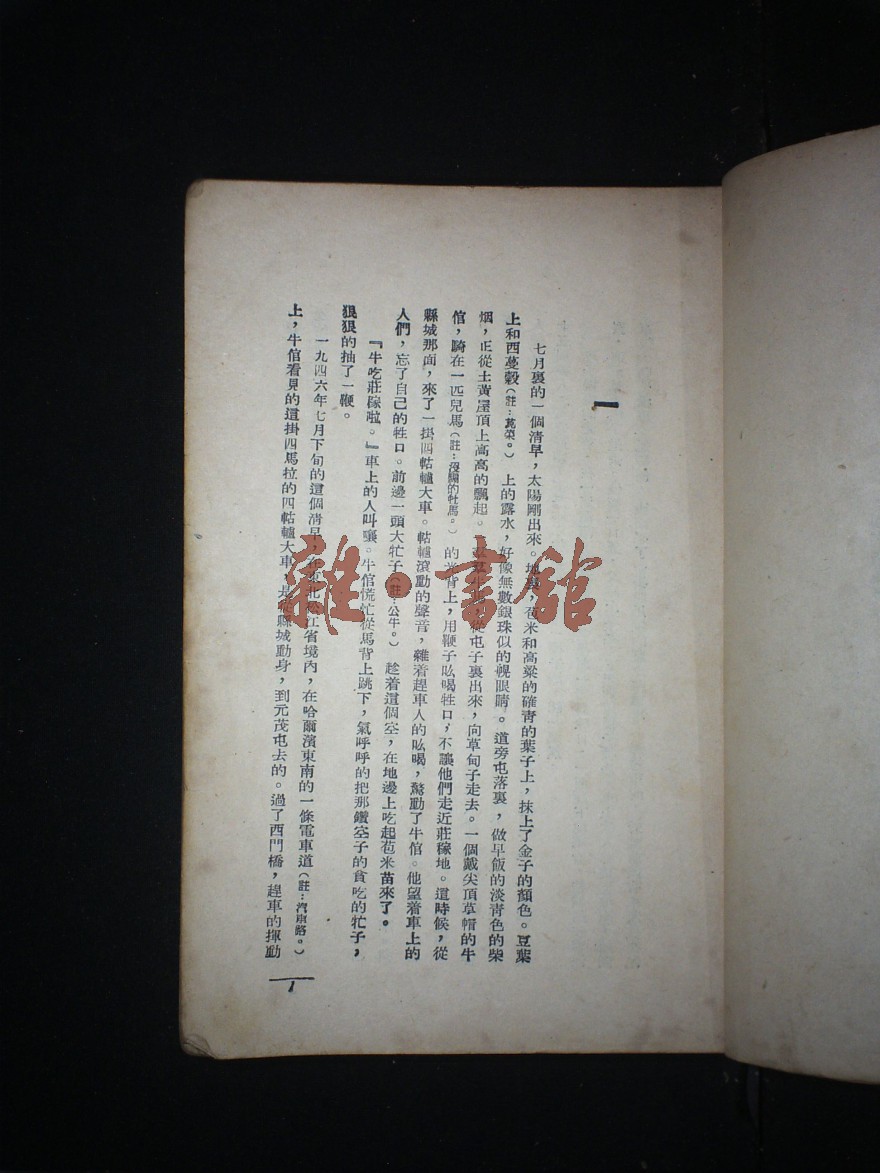 一
七月裏的一個清早，太陽剛出來。地裏，苞米和高粱的確青的葉子上，抹上了金子的顏色。豆葉
上和西蔓穀（註：莧菜。）上的露水，好像無數銀珠似的晃眼睛。道旁屯落裏，做早飯的淡青色的柴
烟，正從土黃屋頂上高高的飄起。從屯子裏出來，向草甸子走去。一個戴尖頂草帽的牛
倌，騎在一匹兒馬（註：沒騸的牡馬。）的光背上，用鞭子吆喝牲口，不讓他們走近莊稼地。這時候，從
縣城那面，來了一掛四軲轆大車。軲轆滾動的聲音，雜着趕車人的吆喝，驚動了牛倌。他望着車上的
人們，忘了自己的牲口。前邊一頭大牤子（註：公牛。）趁着這個空，在地邊上吃起苞米苗來了。
『牛吃莊稼啦。』車上的人叫嚷。牛倌慌忙從馬背上跳下，氣呼呼的把那鑽空子的貪吃的牤子，
狠狠的抽了一鞭。
一九四六年七月下旬的這個清早，在東北松江省境內，在哈爾濱東南的一條電車道（註：汽車路。）
上，牛倌看見的這掛四馬拉的四軲轆大車，是從縣城動身，到元茂屯去的。過了西門橋，趕車的揮動
1
雜·書館